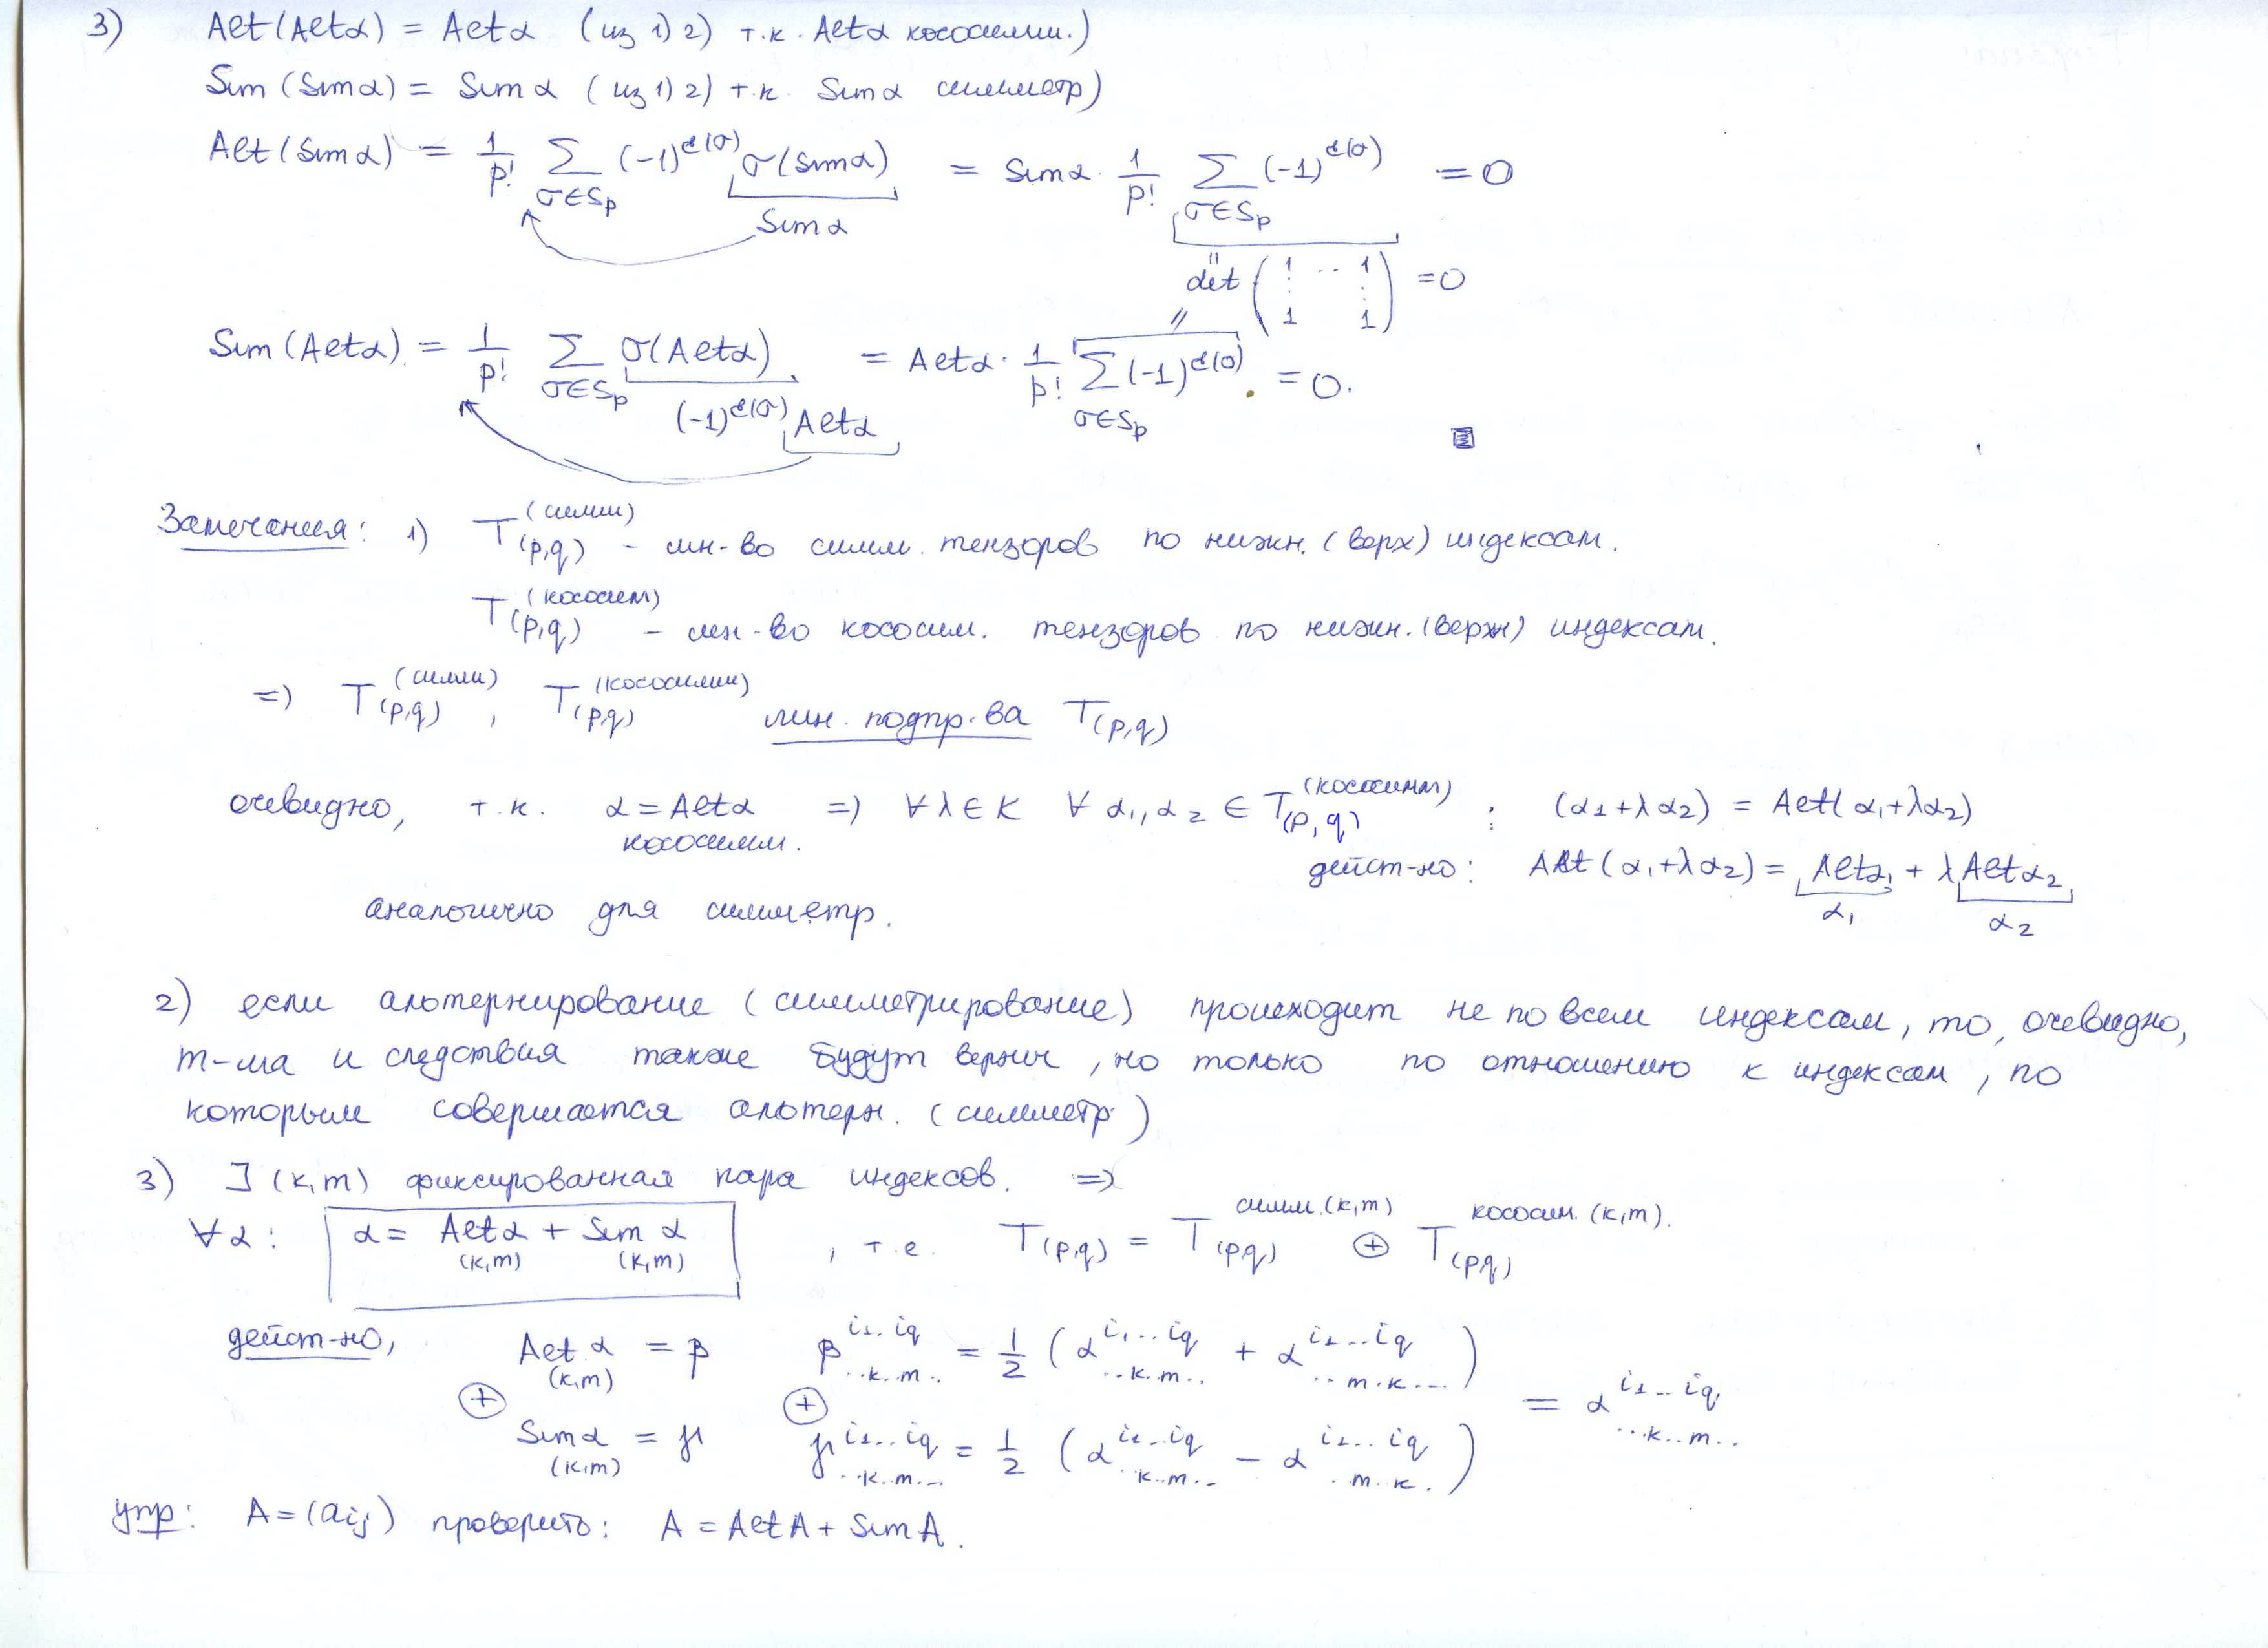 3) Alt(Alt α) = Alt α (из 1) 2) т.к. Alt α кососимм.)
Sim(Sim α) = Sim α (из 1) 2) т.к. Sim α симметр)
Alt(Sim α) = 1/p! ∑_{σ∈S_p} (-1)^{ε(σ)} σ(Sim α) = Sim α · 1/p! ∑_{σ∈S_p} (-1)^{ε(σ)} = 0
Sim α
det (1 ... 1 ⋮ ⋮ 1 1) = 0
Sim(Alt α) = 1/p! ∑_{σ∈S_p} σ(Alt α) = Alt α · 1/p! ∑_{σ∈S_p} (-1)^{ε(σ)} = 0.
(-1)^{ε(σ)} Alt α
Замечания: 1) T_{(p,q)}^{(симм)} - мн-во симм. тензоров по нижн. (верх) индексам.
T_{(p,q)}^{(кососим)} - мн-во кососим. тензоров по нижн. (верхн) индексам.
=> T_{(p,q)}^{(симм)}, T_{(p,q)}^{(кососимм)} лин. подпр-ва T_{(p,q)}
очевидно, т.к. α = Alt α => ∀ λ ∈ K ∀ α₁, α₂ ∈ T_{(p,q)}^{(кососимм)} : (α₁+λα₂) = Alt(α₁+λα₂)
кососимм.
дейст-но: Alt(α₁+λα₂) = Alt α₁ + λ Alt α₂
α₁ α₂
аналогично для симметр.
2) если альтернирование (симметрирование) происходит не по всем индексам, то, очевидно,
т-ма и следствия также будут верны, но только по отношению к индексам, по
которым совершается альтерн. (симметр.)
3) ℐ (k,m) фиксированная пара индексов. =>
∀α: α = Alt_{(k,m)} α + Sim_{(k,m)} α, т.е. T_{(p,q)} = T_{(p,q)}^{симм.(k,m)} ⊕ T_{(p,q)}^{кососим.(k,m).}
дейст-но, Alt_{(k,m)} α = β β^{i₁..i_q}_{..k..m..} = 1/2 (α^{i₁...i_q}_{..k..m..} + α^{i₁...i_q}_{..m..k...})
⊕ ⊕ = α^{i₁...i_q}_{...k..m..}
Sim_{(k,m)} α = γ γ^{i₁...i_q}_{..k..m...} = 1/2 (α^{i₁...i_q}_{..k..m..} - α^{i₁...i_q}_{..m..k.})
упр: A = (a_{ij}) проверить: A = Alt A + Sim A.